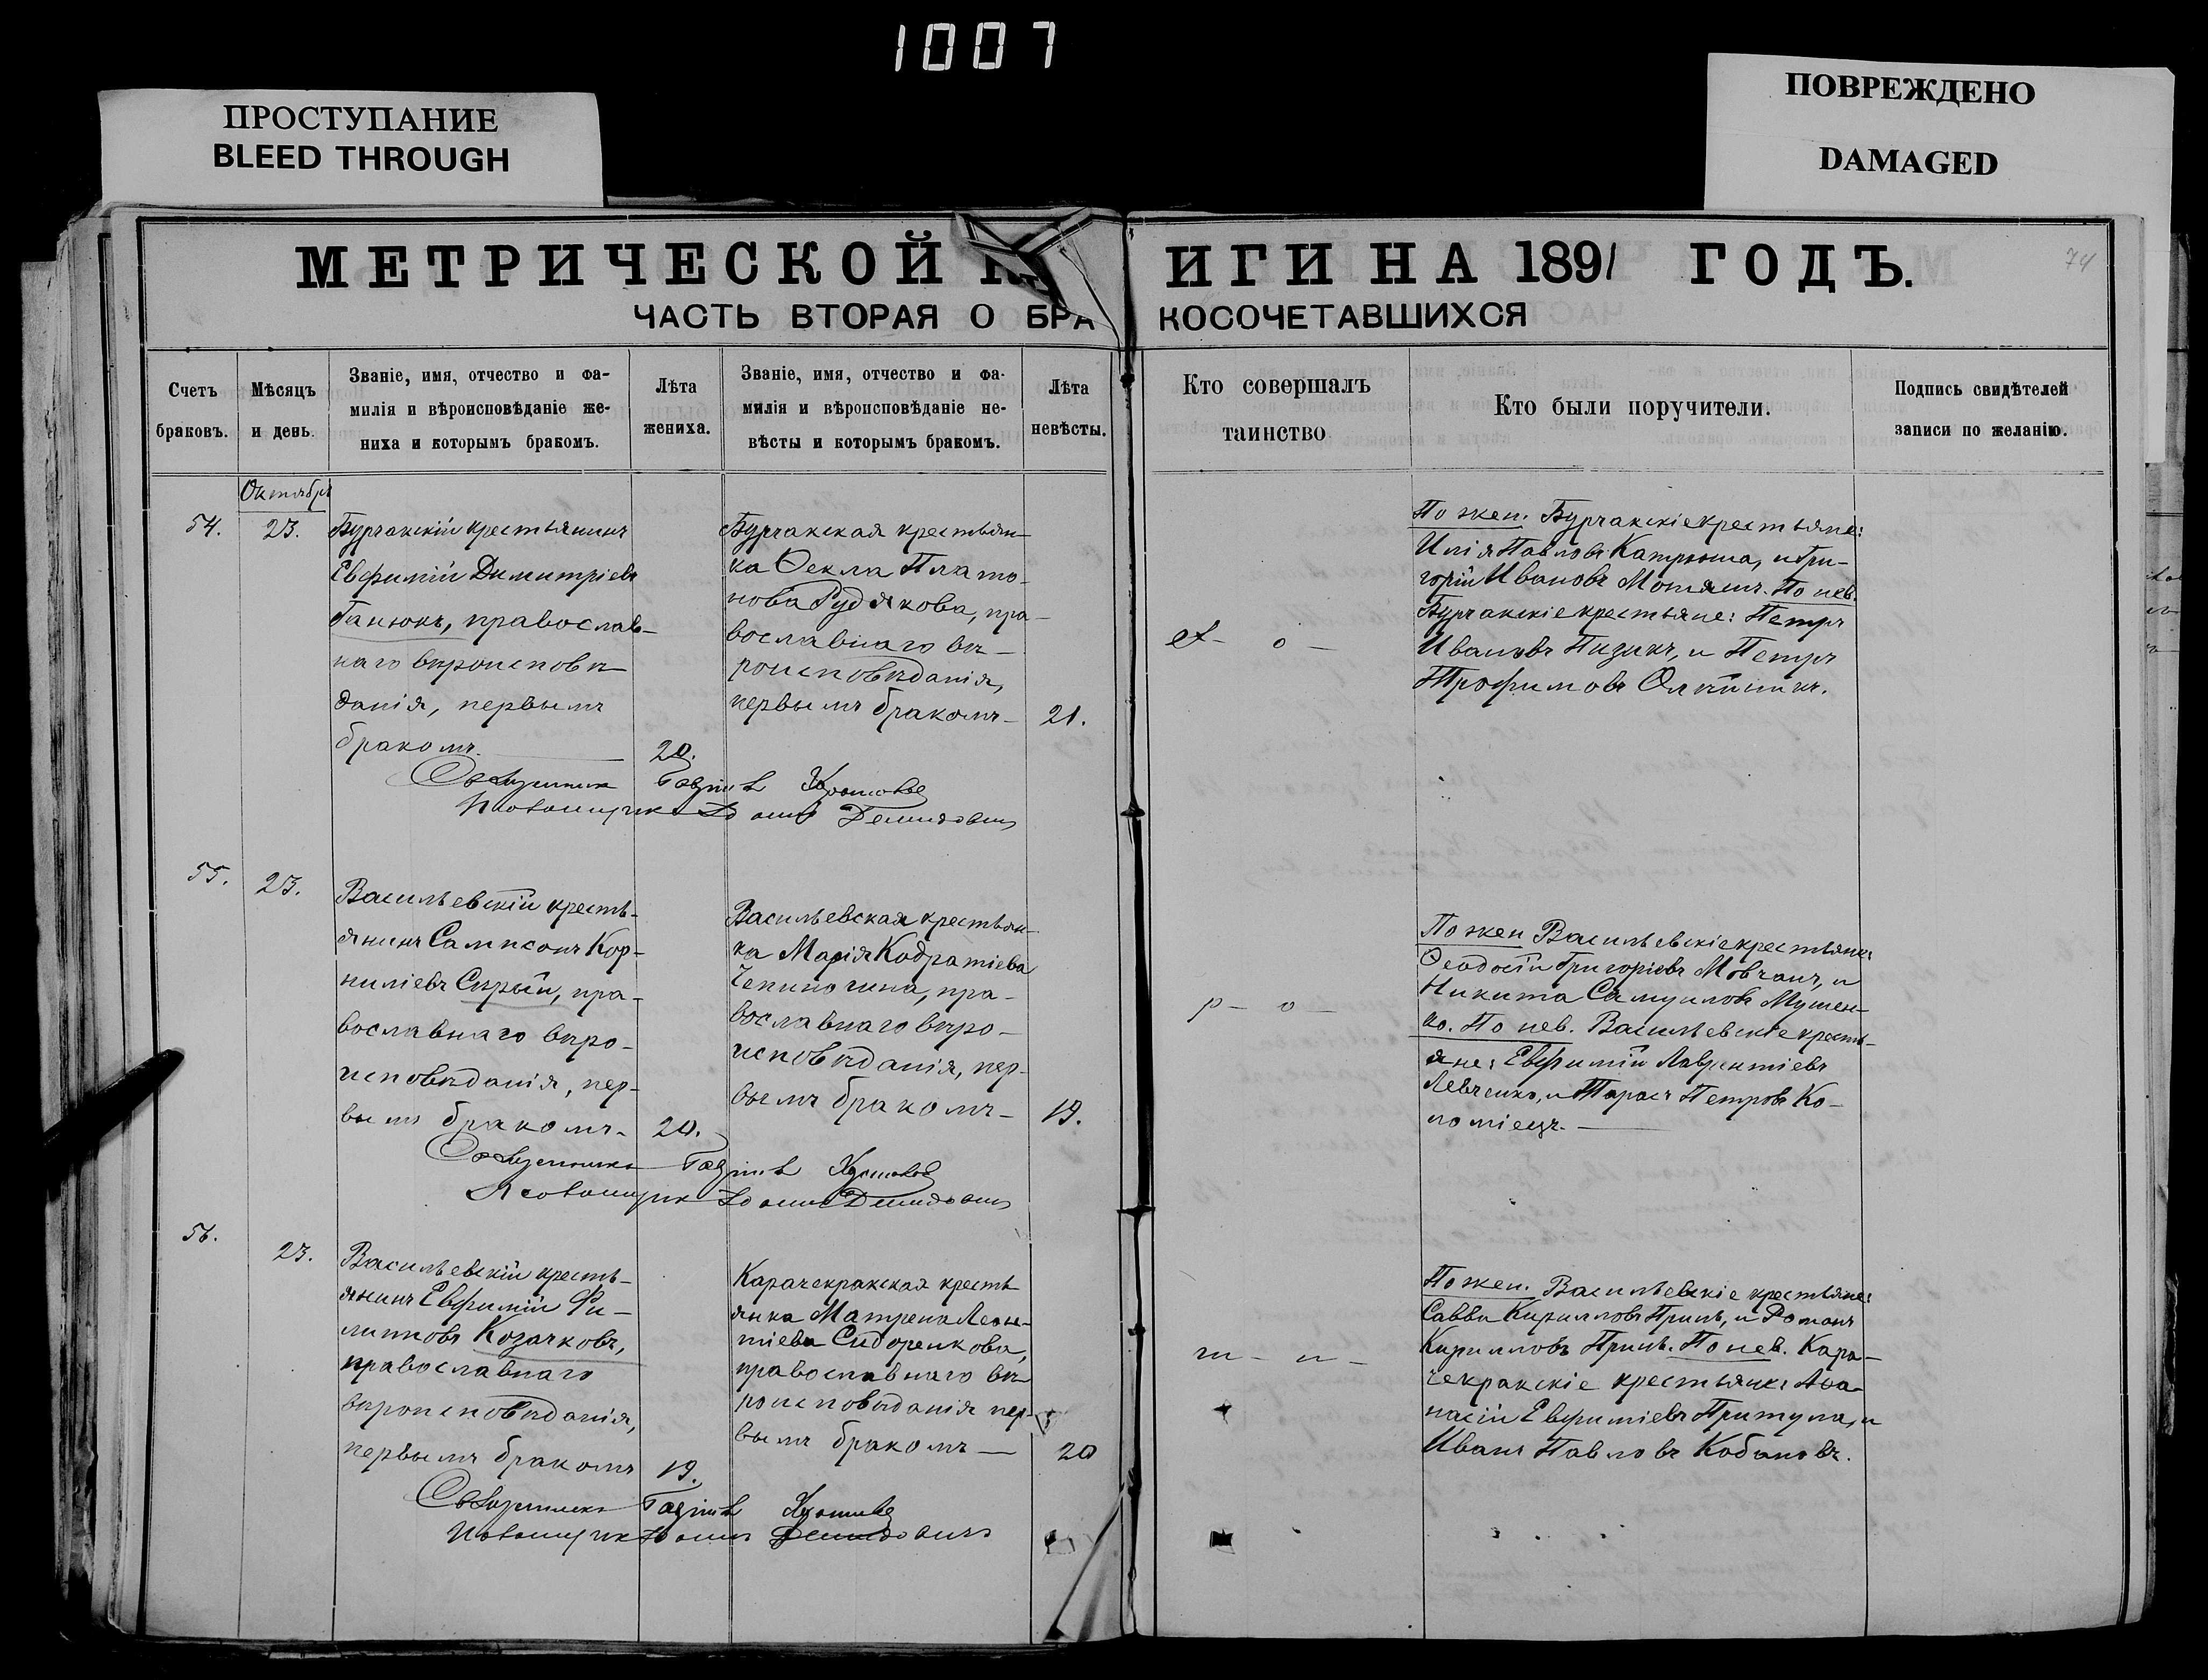 1007
ПРОСТУПАНИЕ
BLEED THROUGH
ПОВРЕЖДЕНО
DAMAGED
МЕТРИЧЕСКОЙ К
ИГИ НА 1891 ГОДЪ.
74
ЧАСТЬ ВТОРАЯ О БРА
КОСОЧЕТАВШИХСЯ
Счетъ
браковъ.
Мѣсяцъ
и день.
Званіе, имя, отчество и фа-
милія и вѣроисповѣданіе же-
ниха и которымъ бракомъ.
Лѣта
жениха.
Званіе, имя, отчество и фа-
милія и вѣроисповѣданіе не-
вѣсты и которымъ бракомъ.
Лѣта
невѣсты.
Кто совершалъ
таинство
Кто были поручители.
Подпись свидѣтелей
записи по желанію.
Октябрь
54.
23.
Бурчакскій крестьянинъ
Евфимій Димитріевъ
Ганюкъ, православ-
наго вѣроисповѣ-
данія, первымъ
бракомъ.
20.
Бурчакская крестьян-
ка Ѳекла Плато-
нова Рудякова, пра-
вославнаго вѣ-
роисповѣданія,
первымъ бракомъ
21.
о
По жен. Бурчакскіе крестьяне:
Илія Павловъ Катрюша, и Гри-
горій Ивановъ По нев.
Бурчакскіе крестьяне: Петръ
Ивановъ Пизикъ, и Петръ
Трофимовъ Олейникъ.
Священникъ
Псаломщикъ Демидовичъ
55.
23.
Васильевскій кресть-
янинъ Сампсонъ Кор-
ниліевъ Сирый, пра-
вославнаго вѣро-
исповѣданія, пер-
вымъ бракомъ
20.
Васильевская крестьян-
ка Марія Кодратіева
пра-
вославнаго вѣро-
исповѣданія, пер-
вымъ бракомъ
19.
р о
По жен Васильевскіе крестьяне:
Ѳеодосій Григоріевъ Мовчанъ, и
Никита Самуиловъ Мушен-
ко. По нев. Васильевскіе кресть-
яне: Евфимій Лаврентіевъ
Левченко, и Тарасъ Петровъ Ко-
ломіецъ.
Священникъ
Псаломщикъ Демидовичъ
56.
23.
Васильевскій кресть-
янинъ Евфимій Фи-
липповъ Козачковъ,
православнаго
вѣроисповѣданія,
первымъ бракомъ
19.
Карачекракская кресть
янка Матрена Леон-
тіева Сидоренкова,
православнаго вѣ-
роисповѣданія пер-
вымъ бракомъ
20
т и
По жен. Васильевскіе крестьяне:
Савва Кирилловъ и Романъ
Кирилловъ По нев. Кара-
чекракскіе крестьяне: Аѳа-
насій Евфиміевъ Притула, и
Иванъ Павловъ Кобановъ.
Священникъ
Псаломщикъ Демидовичъ